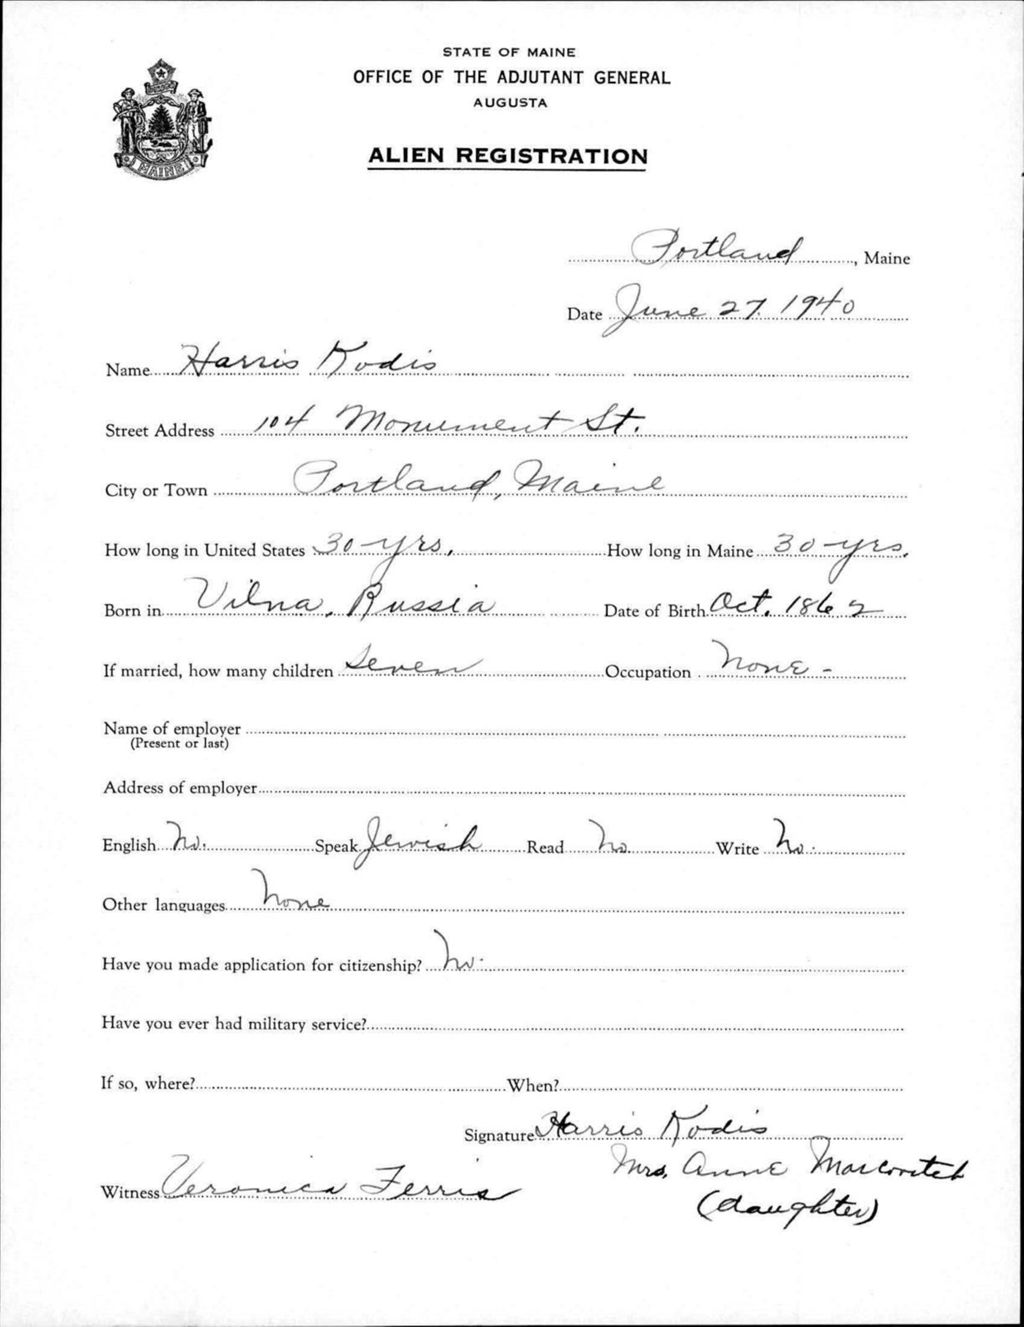 STATE OF MAINE
OFFICE OF THE ADJUTANT GENERAL
AUGUSTA
ALIEN REGISTRATION
MAINE
Portland, Maine
Date June 27. 1940
Name Harris Kodis
Street Address 104 Monument St.
City or Town Portland, Maine
How long in United States 30-yrs. How long in Maine 30-yrs.
Born in Vilna, Russia Date of Birth Oct. 1862
If married, how many children seven Occupation None-
Name of employer
(Present or last)
Address of employer
English No. Speak Jewish Read No Write No.
Other languages None
Have you made application for citizenship? No.
Have you ever had military service?
If so, where? When?
Signature Harris Kodis
Mrs. Anne
Witness Veronica Ferris
(daughter)